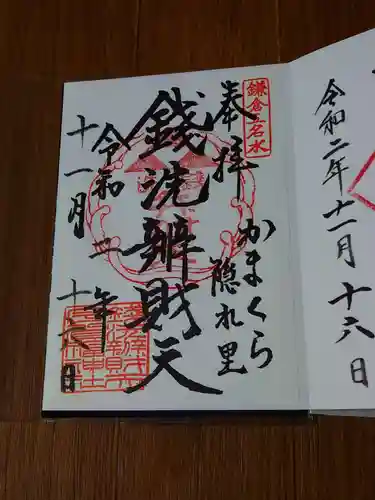 令和二年十一月十六日
鎌倉五名水
奉拝
かまくら
隠れ里
錢洗辨財天
令和 年
十一月十六日